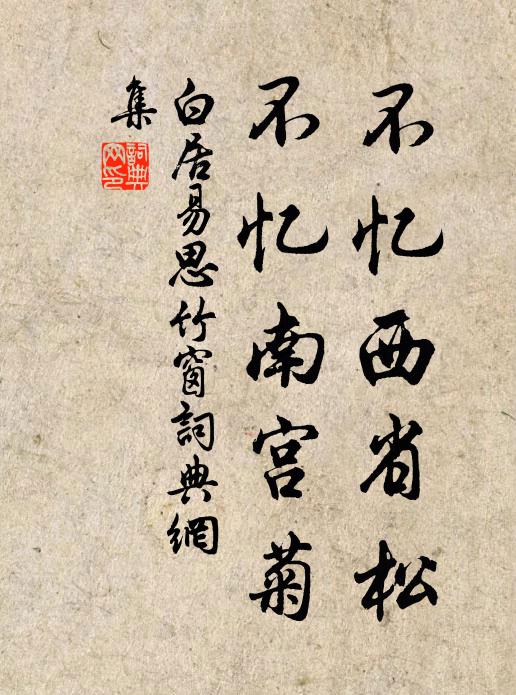 不忆西省松
不忆南宫菊
白居易思竹窗詞典網
集
詞典
网印